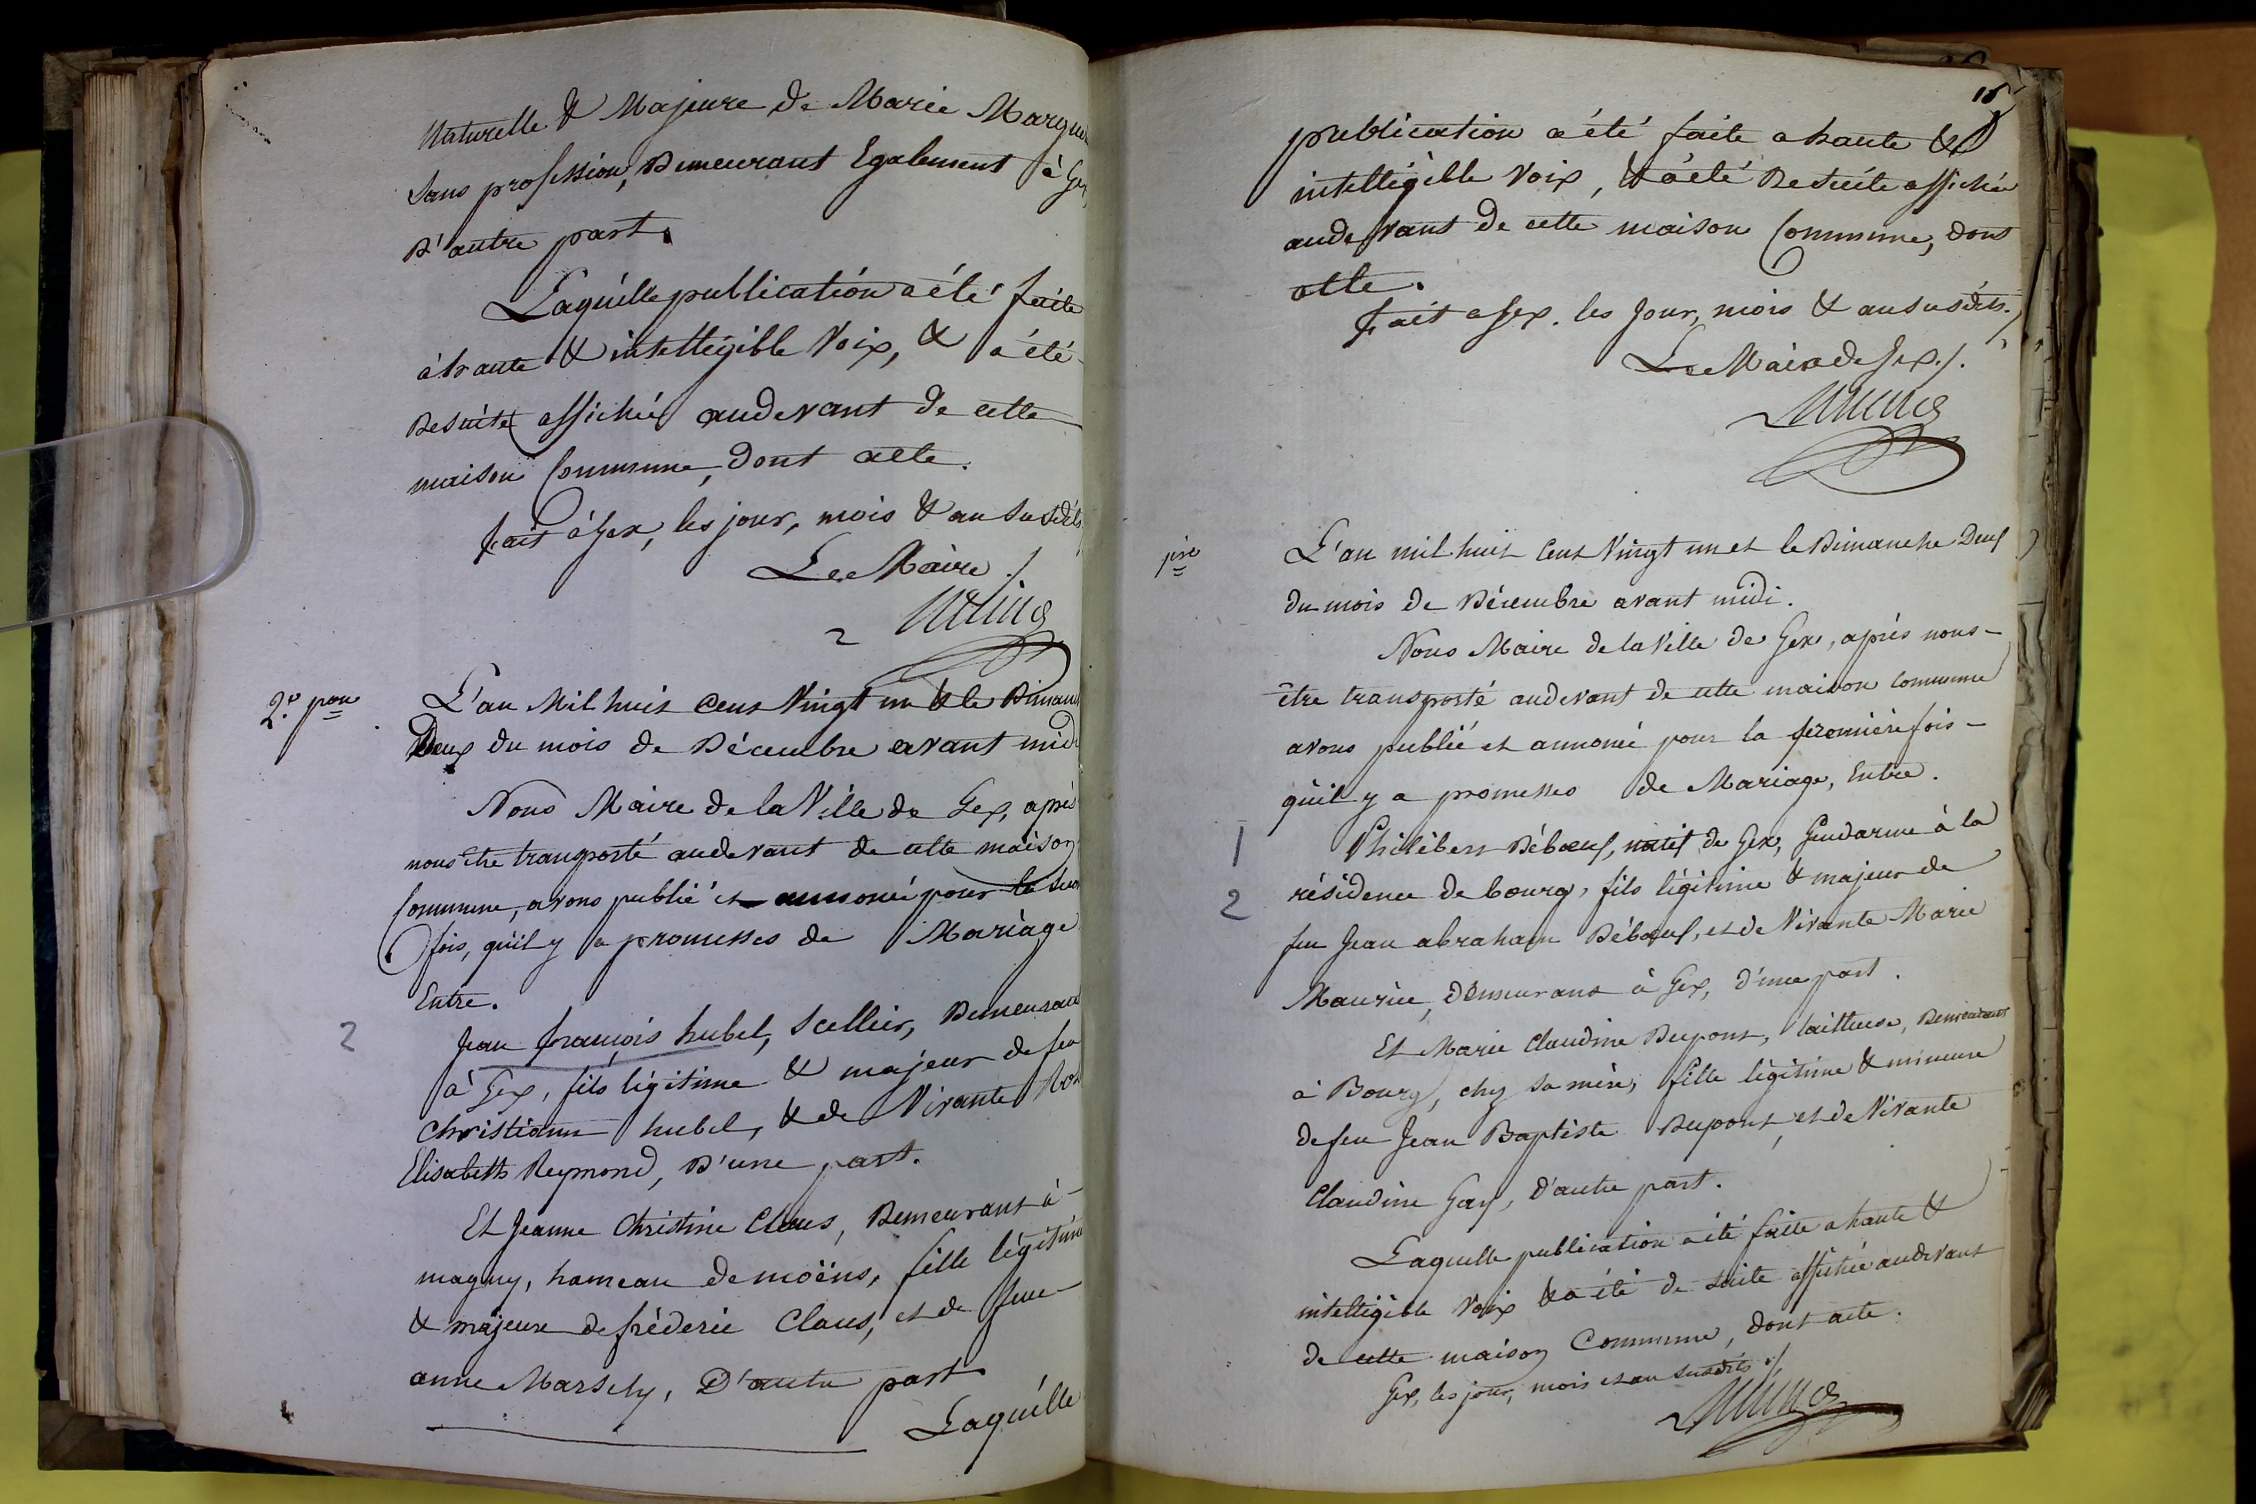 Naturelle & Majeure de Marie Margue
sans profession, Demeurant Egalement à Gex,
D'autre part.
Laquélle publication a été faite
à haute & intelligible Voix, & a été
De suite affichée audevant de cette
maison Commune, dont acte.
fait à Gex, les jour, mois & an susdits
Le Maire ./
2
2.e pon
L'an Mil huit Cent Vingt un & le Dimanc
Deux du mois de Décembre avant midi
Nous Maire de la Ville de Gex, après
nous être transporté audevant de cette maison
Commune, avons publié et annoncé pour la secon
fois, qu'il y a promesses de Mariage
Entre.
2
Jean françois hubel, Scellier, Demeurant
à Gex, fils légitime & majeur de feu
Christiann hubel, & de Vivante
Elisabeth Reymond, D'une part.
Et Jeanne Christine Claus, Demeurant à
magny, hameau de moëns, fille légitime
& majeure de fréderic Claus, et de feue
anne Marsely, D'autre part
Laquélle
15
publication a été faite a haute &
intelligible Voix, & a été De suite affichée
audevant de cette maison Commune, dont
acte.
Fait a Gex. les Jour, mois & an susdits./
Le Maire de Gex ./.
pre
L'an mil huit Cent Vingt un et le Dimanche Deux
du mois de Décembre avant midi.
Nous Maire de la Ville de Gex, après nous
être transporté audevant de cette maison commune
avons publié et annoncé pour la première fois
qu'il y a promesses de Mariage, Entre.
1
Philibert Débœuf, natif de Gex, Gendarme à la
2
résidence de bourg, fils légitime & majeur de
feu Jean abraham Débœuf, et de Vivante Marie
Maurice, Demeurant à Gex, d'une part.
Et Marie Claudine Dupont, laitteuse, Demeurant
à Bourg, chez sa mère, fille légitime & mineure
de feu Jean Baptiste Dupont, et de Vivante
Claudine Gay, d'autre part.
Laquelle publication a été faite a haute &
intelligible Voix & a été de suite affichée audevant
de cette maison Commune, dont acte.
Gex, les jour, mois et an susdits ./